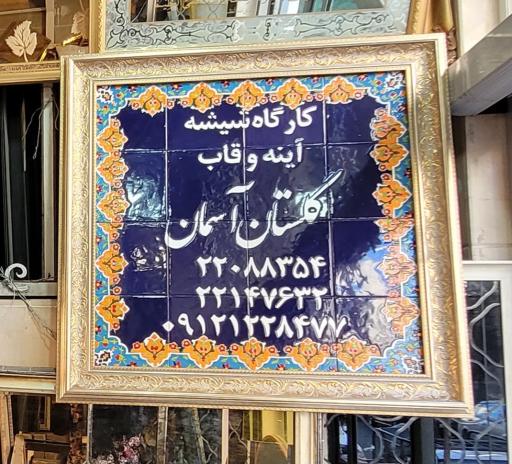 کارگاه شیشه
آینه و قاب
گلستان آسمان
۲۲۰۸۸۳۵۴
۲۲۱۴۷۶۳۲
۰۹۱۲۱۲۲۸۴۷۷